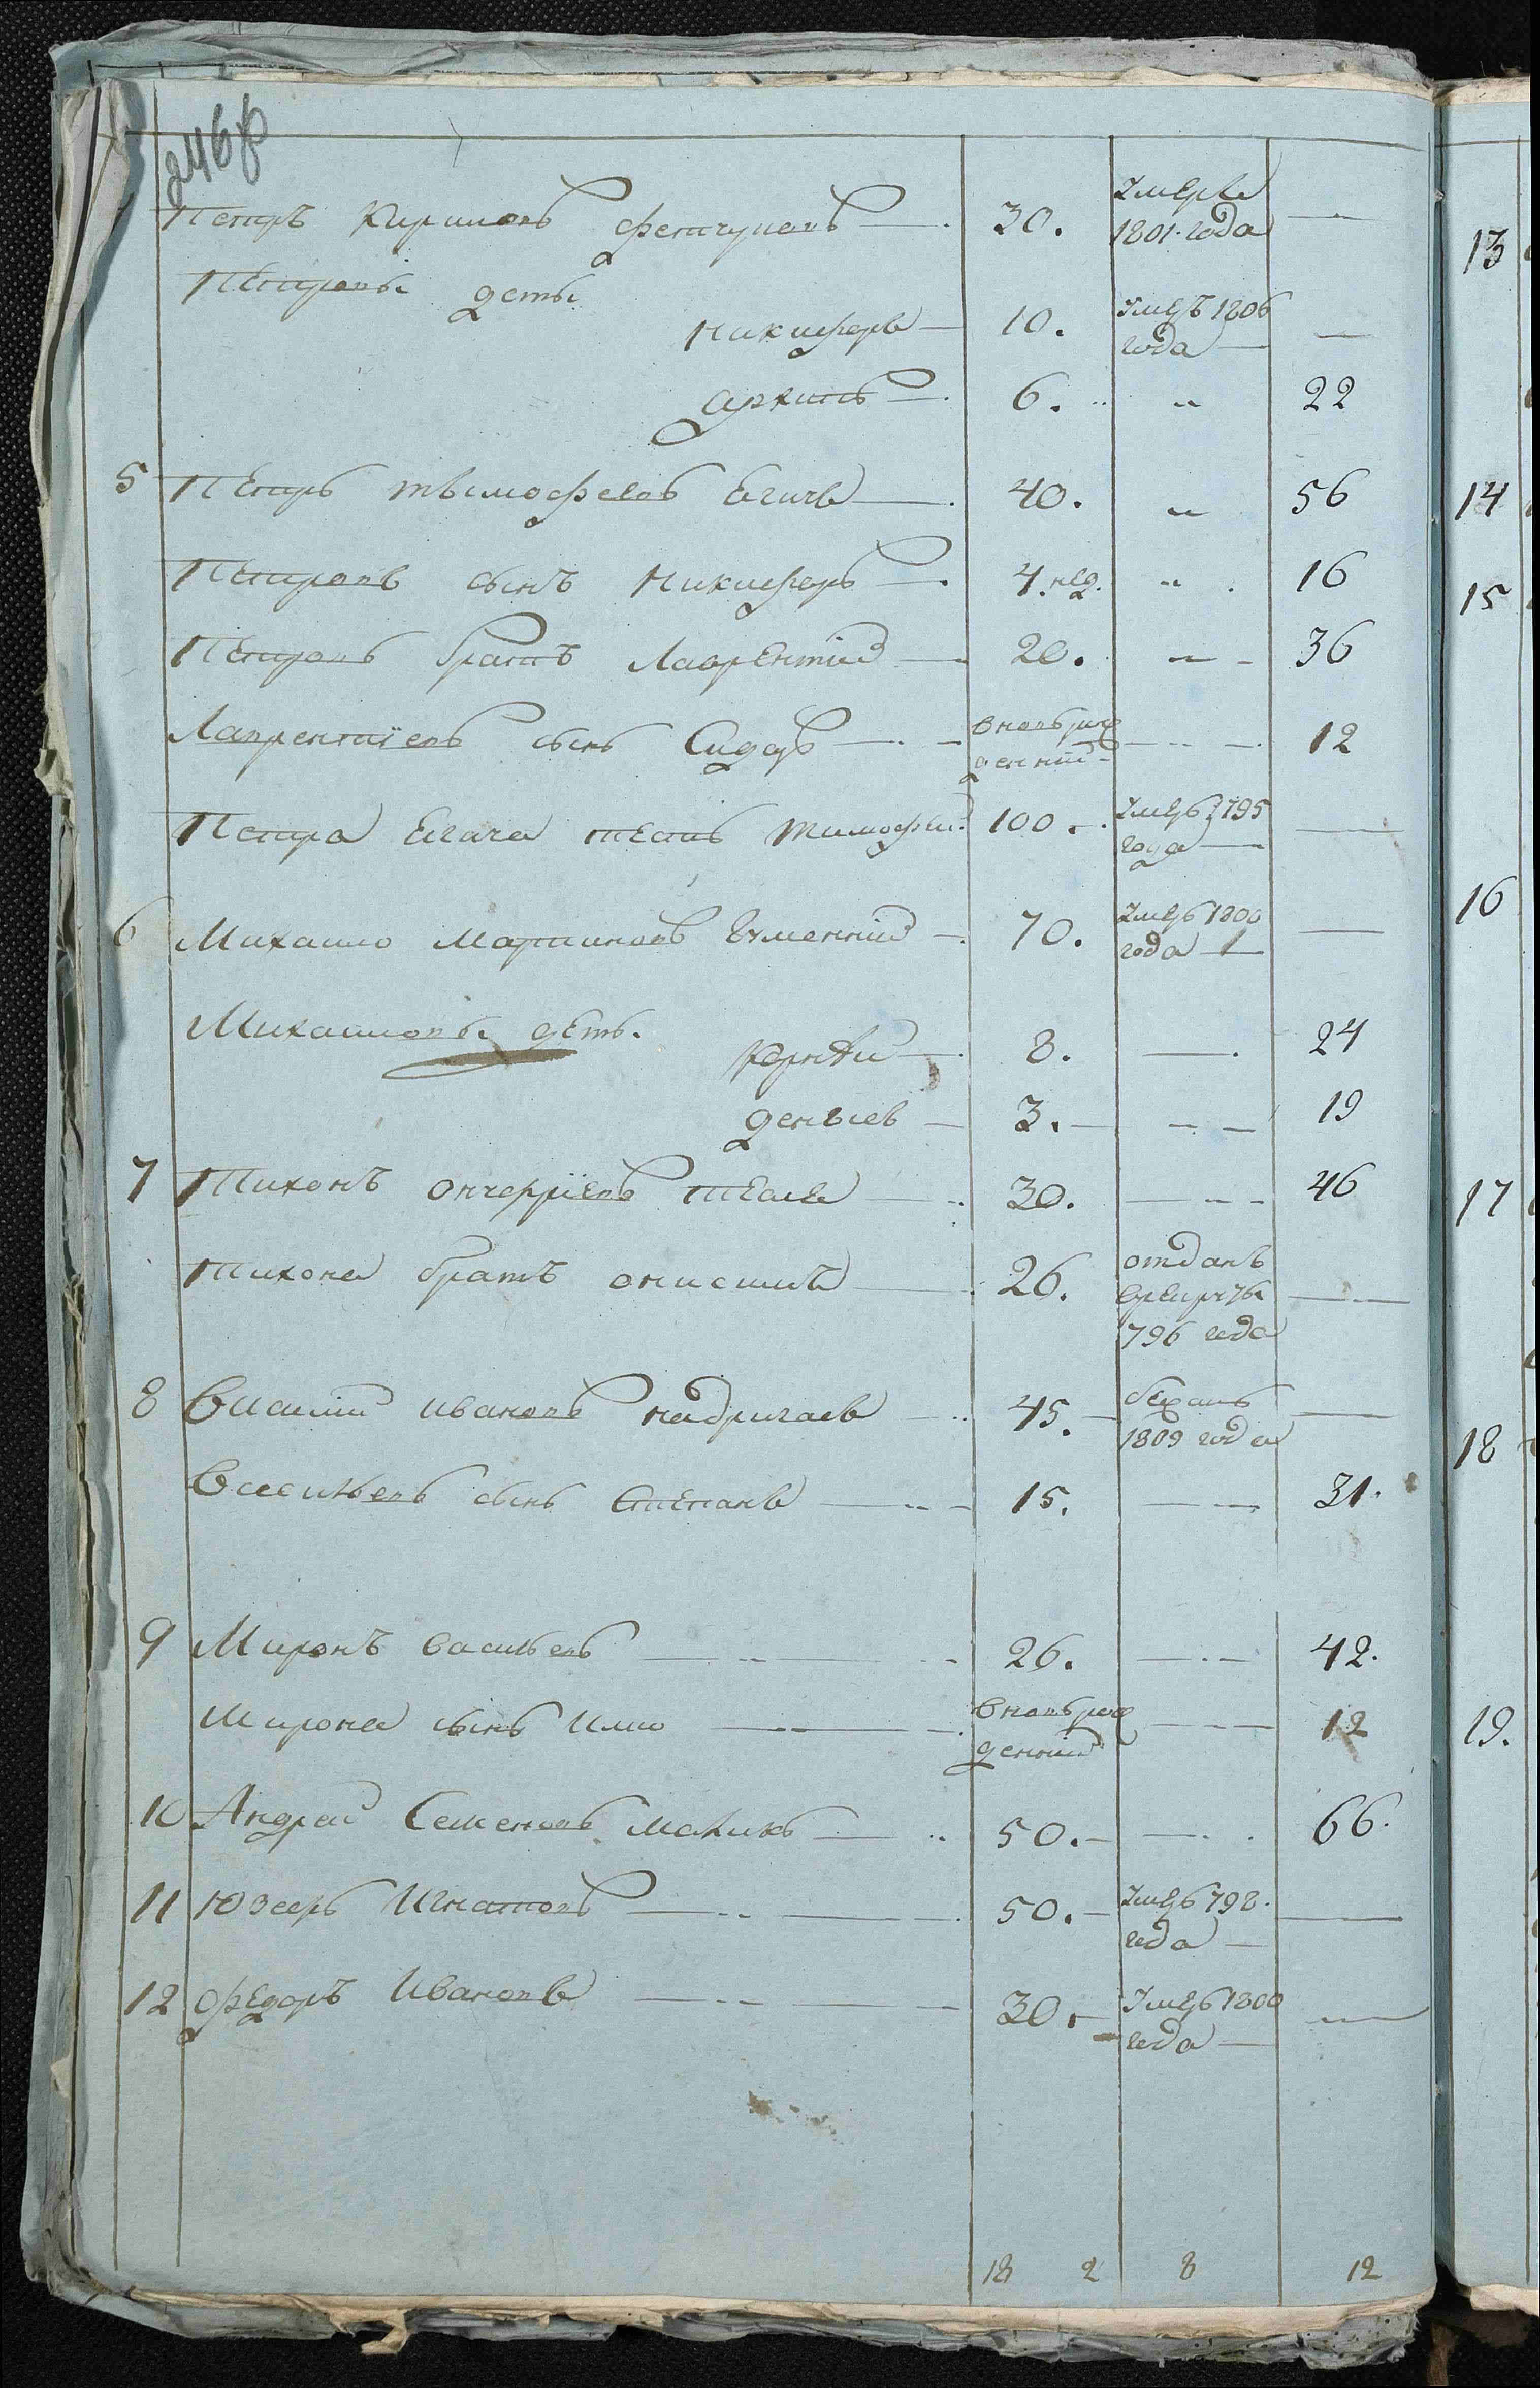 246
Петръ Кириловъ Фетчуновъ 30. Умерв
1801. года
Петровы дети
Никифоръ 10. Умеръ 1806
года
архипъ 6. „ 22
5 Петръ тымофеевъ Богачъ 40. „ 56
Петровъ сынъ Никифоръ 4. нед. „ 16
Петровъ братъ Лаврентий 20. „ 36
Лаврентіевъ сынъ Сидоръ вновь рож
денний 12
Петра тесть Тимофей 100. Умеръ 1795
года
6 Михаило Мартиновъ 70. Умеръ 1800
года
Михаиловы дети.
Корнѣй 8. 24
Денысъ 3. 19
7 Тихонъ 30. 46
Тихона братъ онисимъ 26. отданъ
врекруты
796 года
8 Василий Ивановъ 45. бежалъ
1809 года
Васильевъ сынъ Степанъ 15. 31.
9 Миронъ Васильевъ 26. 42.
Мирона сынъ Илио вновь рож
денний 12
10 Андрей Семеновъ Маликъ 50. 66.
11 Юзефъ Игнатовъ 50. Умеръ 798.
года
12 Федоръ Ивановъ 30. Умеръ 1800
года
18 2 8 12
13
14
15
16
17
18
19.